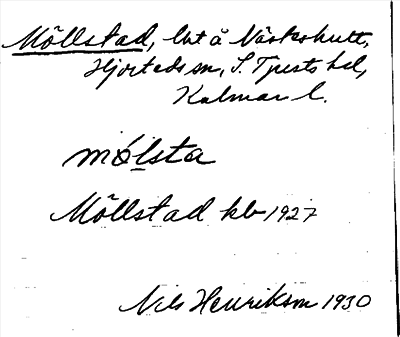 Möllstad, lht å Våskohult,
Hjorteds sn, S. Tjusts hd,
Kalmar l.
mólsta
Möllstad kb 1927
Nils Henrikson 1930